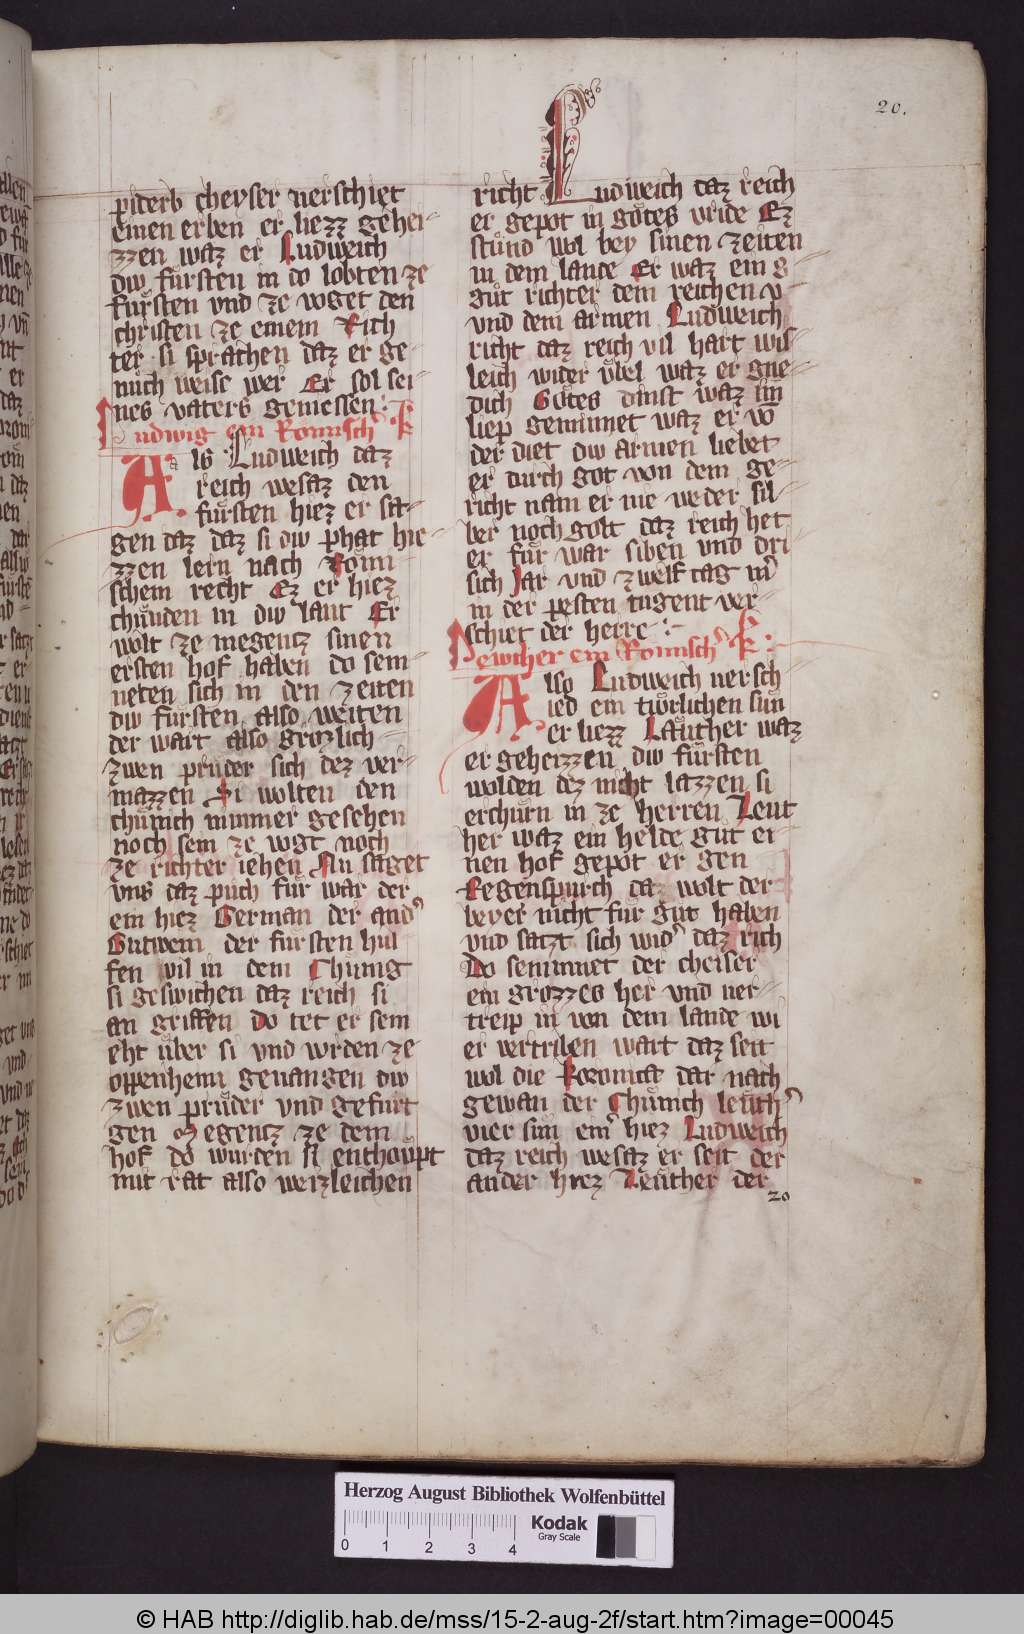 20.
piderb cheyser verschiet
einen erben er liezz gehei-
zzen waz er Ludweich
diw fürsten in do lobten ze
fürsten vnd ze voget den
christen ze einem Rich
ter si sprachen daz er ge-
nuch weise wer Er sol sei-
nes vaters geniessen :
Ludwig ein Romisch k
Als Ludweich daz
reich wesaz den
fürsten hiez er sa-
gen daz daz si diw phat hie-
zzen lern nach Römi
schem recht Ez er hiez
chünden in diw lant Er
wolt ze megencz sinen
ersten hof haben do sem-
neten sich in den zeiten
diw fürsten also weiten
der wart also grozlich
zwen prüder sich dez ver-
mazzen Si wolten den
chünich nimmer gesehen
noch sein ze vogt noch
ze richter iehen Nu saget
vns daz püch für war der
ein hiez German der and
Gutwein der fürsten hul
fen vil in dem Chünig
si geswichen daz reich si
an griffen do tet er sem
eht über si vnd wrden ze
oppenheim geuangen diw
zwen prüder vnd gefürt
gen Megencz ze dem
hof do wurden si enthaupt
mit rat also werzleichen
richt Ludweich daz reich
er gepot in gotes vride Ez
stünd wol bey sinen zeiten
in dem lande Er waz ein g-
güt richter dem reichen v-
vnd dem armen Ludweich
richt daz reich vil hart wis
leich wider übel waz er gne-
dich Gotes dinst waz im
liep geminnet waz er vo
der diet diw armen liebet
er durch got von dem ge-
richt nam er nie weder sil-
ber noch golt daz reich het
er für war siben vnd dri-
sich Jar vnd zwelf tag in
in der pesten tugent ver-
schiet der herre :-
Lewther ein Romisch k :
Also Ludweich versch
ied ein tiwrlichen sun
er liezz Lauther waz
er geheizzen diw fürsten
wolden dez nicht lazzen si
erchürn in ze herren Leut
her waz ein helde güt ei-
nen hof gepot er gen
Regenspurch daz wolt der
beyer nicht für güt haben
vnd satzt sich wid daz rich
Do semmnet der cheiser
ein grozzes her vnd ver-
treip in von dem lande wi
er vertriben wart daz seit
wol die koronica dar nach
gewan der Chünich leuth
vier sün ein hiez Ludweich
daz reich wesaz er seit der
ander hiez Leuther der
20
Herzog August Bibliothek Wolfenbüttel
0 1 2 3 4
Kodak
Gray Scale
© HAB http://diglib.hab.de/mss/15-2-aug-2f/start.htm?image=00045